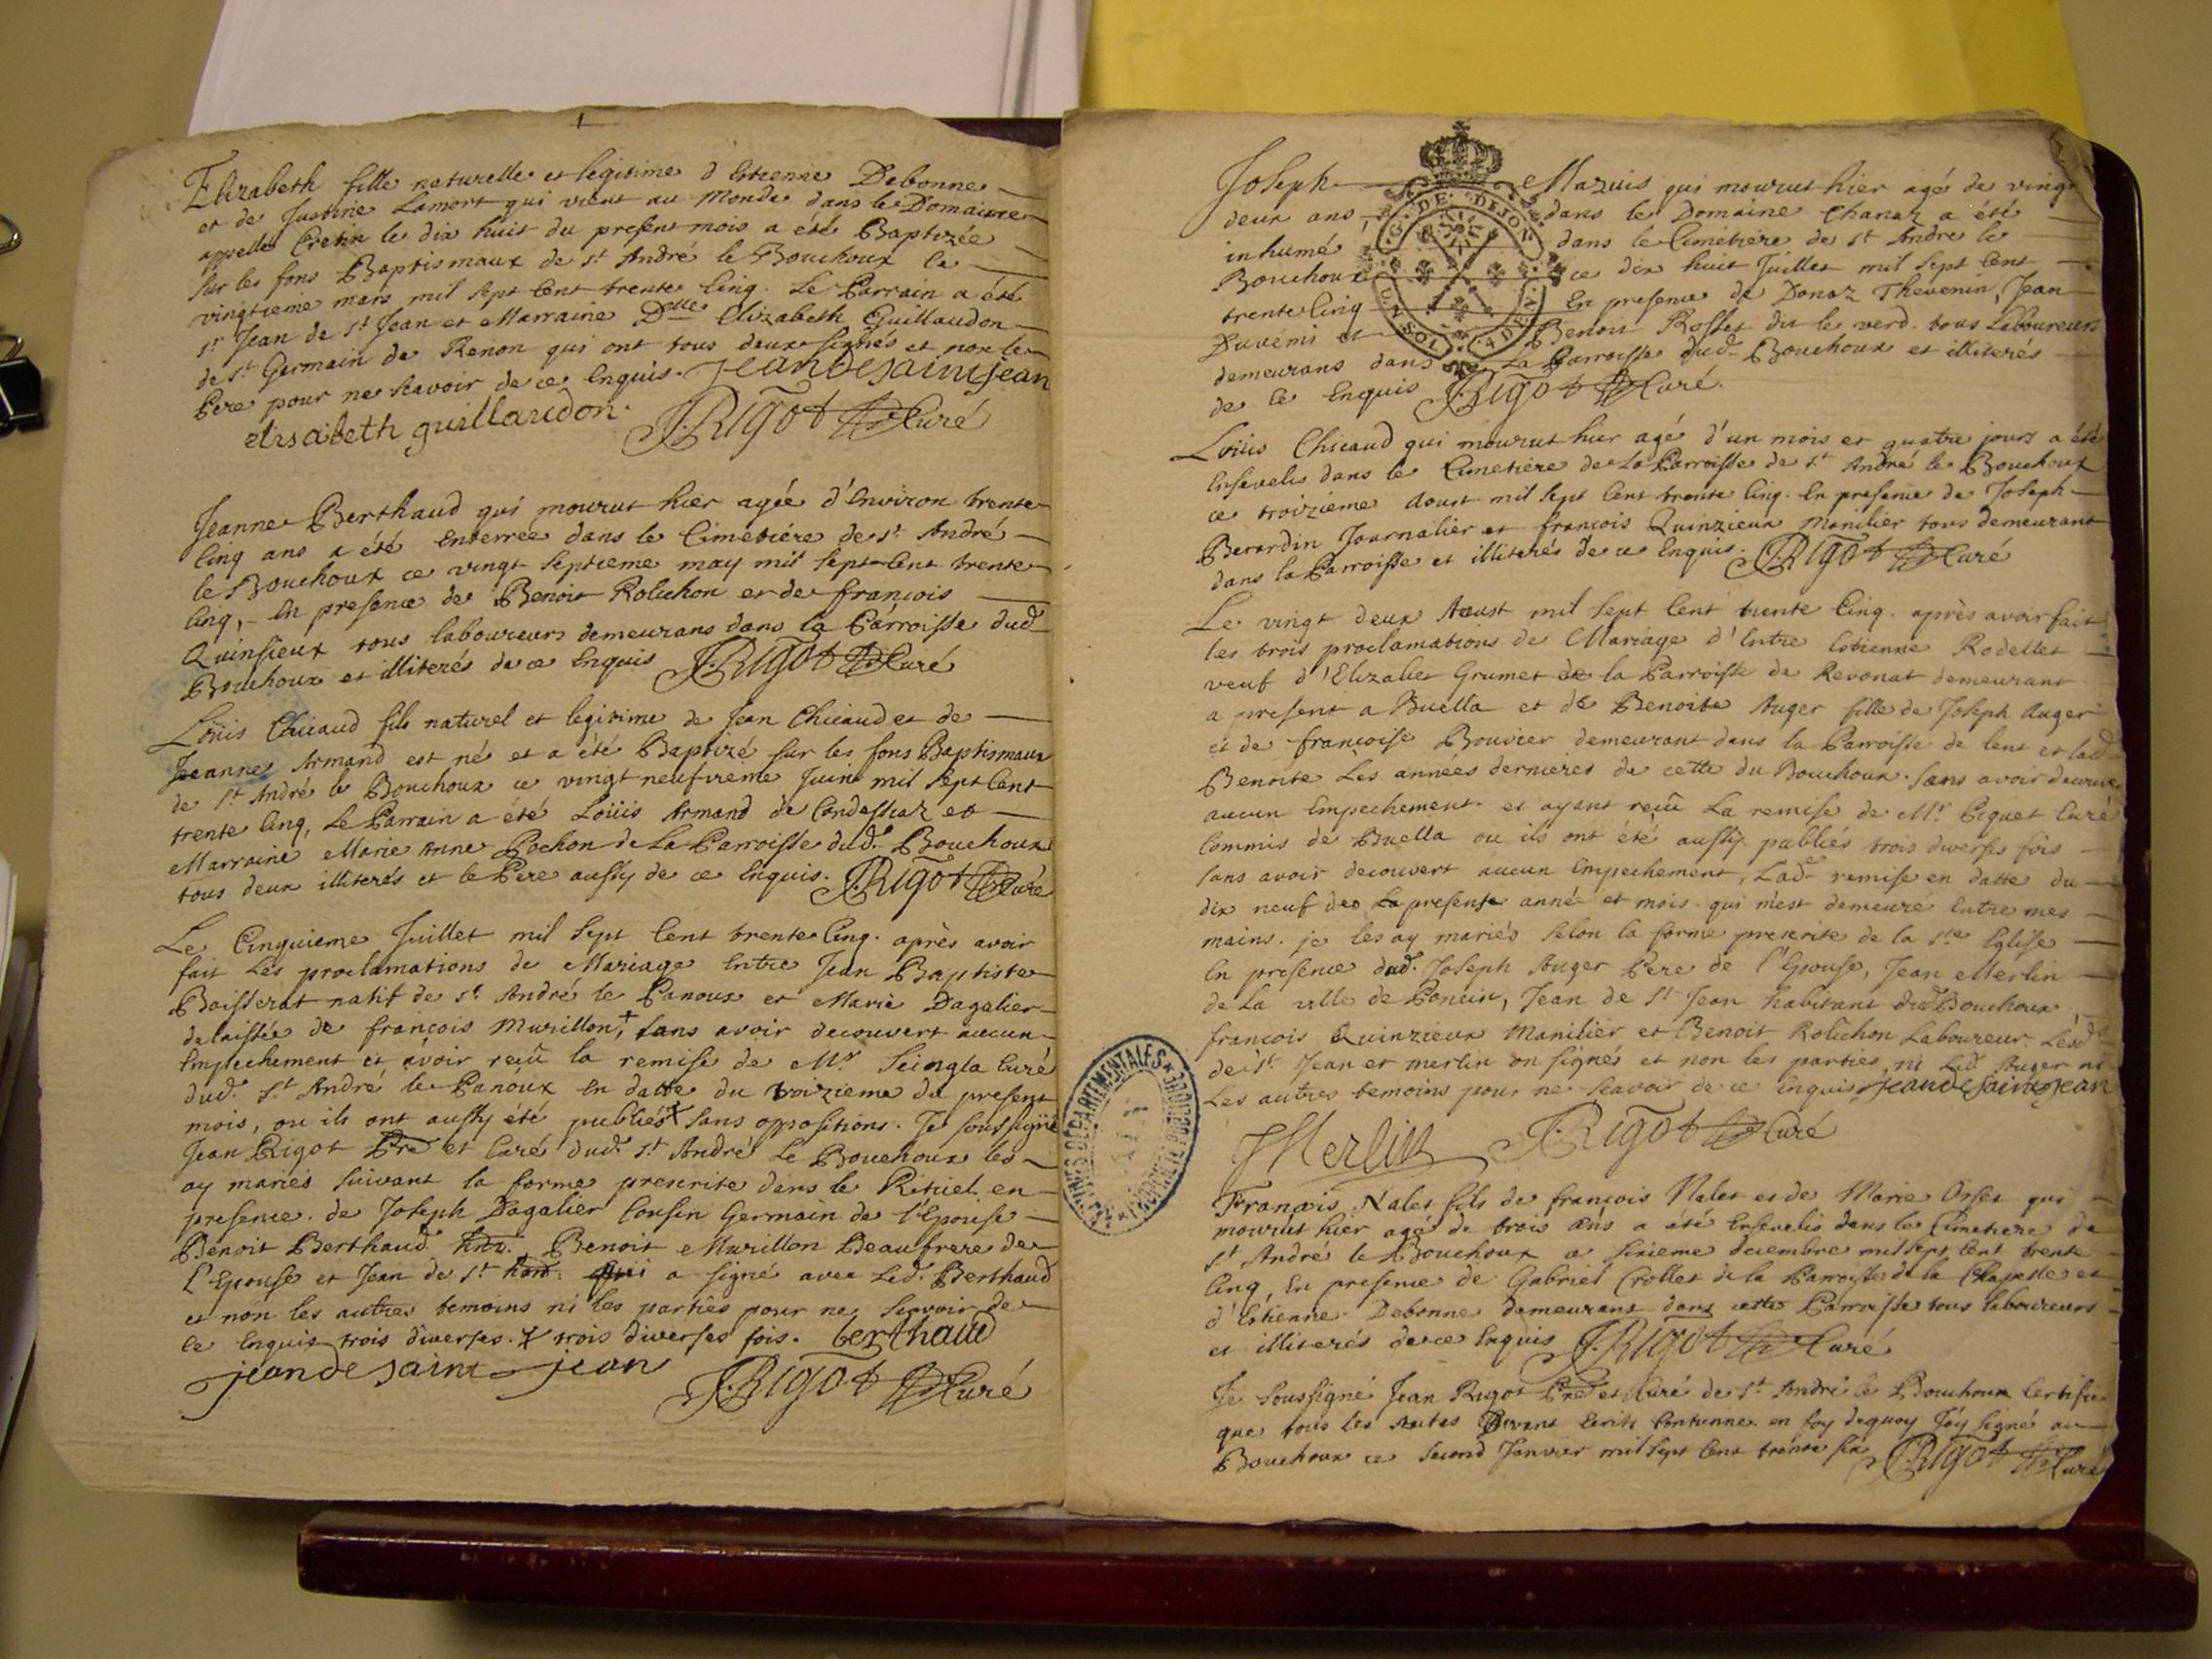 Elizabeth fille naturelle et legitime d'Estienne Debonne
et de Justine Lamort qui vient au Monde dans le Domaine
appellé Cretin le dix huit du present mois a été Baptizée
sur les fons Baptismaux de St André le Bouchoux le
vingtieme mars mil sept Cent trente Cinq. Le Parrain a été
sr Jean de St Jean et Marraine Dlle Elizabeth Guillaudon
de St Germain de Renon qui ont tous deux signés et non le
Pere pour ne scavoir de ce Enquis. Jean De saint jean
elisabeth guillaudon. J. Rigot Curé
Jeanne Berthaud qui mourut hier agée d'Environ trente
Cinq ans a été Enterrée dans le Cimetiére de St André
le Bouchoux ce vingt septieme may mil sept Cent trente
Cinq, En presence de Benoit Rolichon et de françois
Quinsieux tous laboureurs demeurans dans la Parroisse dud
Bouchoux et illiterés de ce Enquis J. Rigot Curé
Loüis Chicaud fils naturel et legitime de Jean Chicaud et de
Jeanne Armand est né et a été Baptizé sur les fons Baptismaux
de St André le Bouchoux ce vingt neufvieme Juin mil sept Cent
trente Cinq, Le Parrain a été Loüis Armand de Condessiaz et
Marraine Marie Anne Pochon de La Parroisse dud. Bouchoux
tous deux illiterés et le Pere aussy de ce Enquis. J. Rigot Curé
Le Cinquieme Juillet mil sept Cent trente Cinq. après avoir
fait Les proclamations de Mariage Entre Jean Baptiste
Boisserat natif de St André le Panoux et Marie Dagalier
delaissée de françois Murillon, + sans avoir decouvert aucun
Empechement et avoir reçû la remise de Mr Seingla Curé
dud. St André le Panoux En datte du troizieme du present
mois, ou ils ont aussy été publiés X sans oppositions. Je soussigné
Jean Rigot Pre et Curé dud. St André Le Bouchoux les
ay mariés suivant la forme prescrite dans le Rituel en
presence de Joseph Dagalier Cousin Germain de l'Epouse
Benoit Berthaud Benoit Murillon Beaufrere de
l'Epouse et Jean de St qui a signé avec Led. Berthaud
et non les autres temoins ni les parties pour ne scavoir de
ce Enquis trois diverses. X trois diverses fois. berthaud
jean de saint jean J. Rigot Curé
Joseph Mazuis qui mourut hier agé de vingt
deux ans, dans le Domaine Chanaz a été
inhumé dans le Cimétiére de St André le
Bouchoux ce dix huit Juillet mil sept Cent
trente Cinq En presence de Donaz Thevenin, Jean
Duvémi et Benoit Rosset dit le verd. tous Laboureurs
demeurans dans La Parroisse dud. Bouchoux et illiterés
de Ce Enquis J. Rigot Curé.
G. DE DIJON
UN SOL 4 DEN.
Loüis Chicaud qui mourut hier agé d'un mois et quatre jours a été
Ensevelis dans le Cimetiére de La Parroisse de St André le Bouchoux
ce troizieme Aoust mil sept Cent trente Cinq. En presence de Joseph
Berardin Journalier et françois Quinzieux Manilier tous demeurant
dans la Parroisse et illiterés de ce Enquis. J. Rigot Curé
Le vingt deux Aoust mil sept Cent trente Cinq. après avoir fait
les trois proclamations de Mariage d'Entre Estienne Rodellet
veuf d'Elizabet Grumet de la Parroisse de Revonat demeurant
a present a Buella et de Benoite Auger fille de Joseph Auger
et de françoise Bouvier demeurant dans la Parroisse de lent et lad
Benoite Les années dernieres de cette du Bouchoux. sans avoir decouvert
aucun Empechement et ayant reçû La remise de Mr Piquet Curé
Commis de Buella ou ils ont été aussy publiés trois diverses fois
sans avoir decouvert aucun Empechement, Lad remise en datte du
dix neuf des La presente année et mois. qui m'est demeuré Entre mes
mains. je les ay mariés selon la forme prescrite de la Ste Eglise
En presence dud. Joseph Auger Pere de l'Epouse, Jean Merlin
de La ville de Poncin, Jean de St Jean habitant dud Bouchoux,
françois Quinzieux Manilier et Benoit Rolichon Laboureur. Lesd.
de St. Jean et Merlin on signés et non les parties, ni Led Auger ni
Les autres temoins pour ne scavoir de ce enquis jean De saint jean
J Merlin J. Rigot Curé
François Nalet fils de françois Nalet et de Marie Orset qui
mourut hier agé de trois ans a été Ensevelis dans le Cimetiere de
St André le Bouchoux ce sixieme decembre mil sept Cent trente
Cinq, En presence de Gabriel Crollet de la Parroisse de la Chapelle et
d'Estienne Debonne demeurans dans cette Parroisse tous laboureurs
et illiterés de ce Enquis J. Rigot Curé
Je Soussigné Jean Rigot Pre et Curé de St André le Bouchoux Certifie
que tous les Actes en foy dequoy J'ay signé au
Bouchoux ce second Janvier mil sept Cent trente six J. Rigot Curé